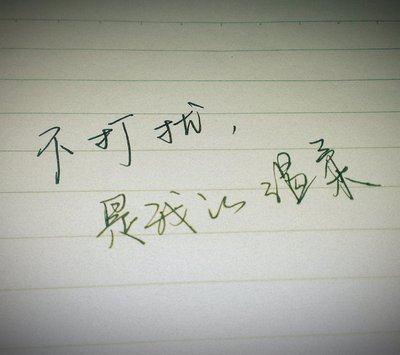 不打扰,
是我的温柔